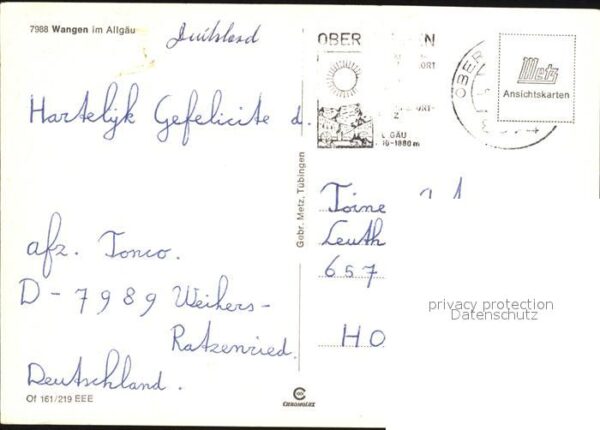 7988 Wangen im Allgäu
Duitsland
Hartelijk Gefelicite d.
afz. Tonco.
D-7989 Weihers-
Ratzenried.
Deutschland.
Of 161/219 EEE
Gebr. Metz, Tübingen
OBER EN
ORT
ORT-
Z
GÄU
-1880 m
OBER
Metz
Ansichtskarten
Toine
Leuth
657
HO
privacy protection
Datenschutz